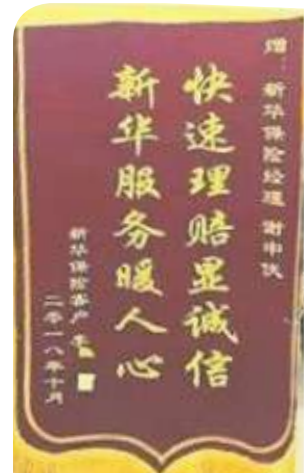 赠：新华保险经理 谢申伙
快速理赔显诚信
新华服务暖人心
新华保险客户 李
二零一八年十月